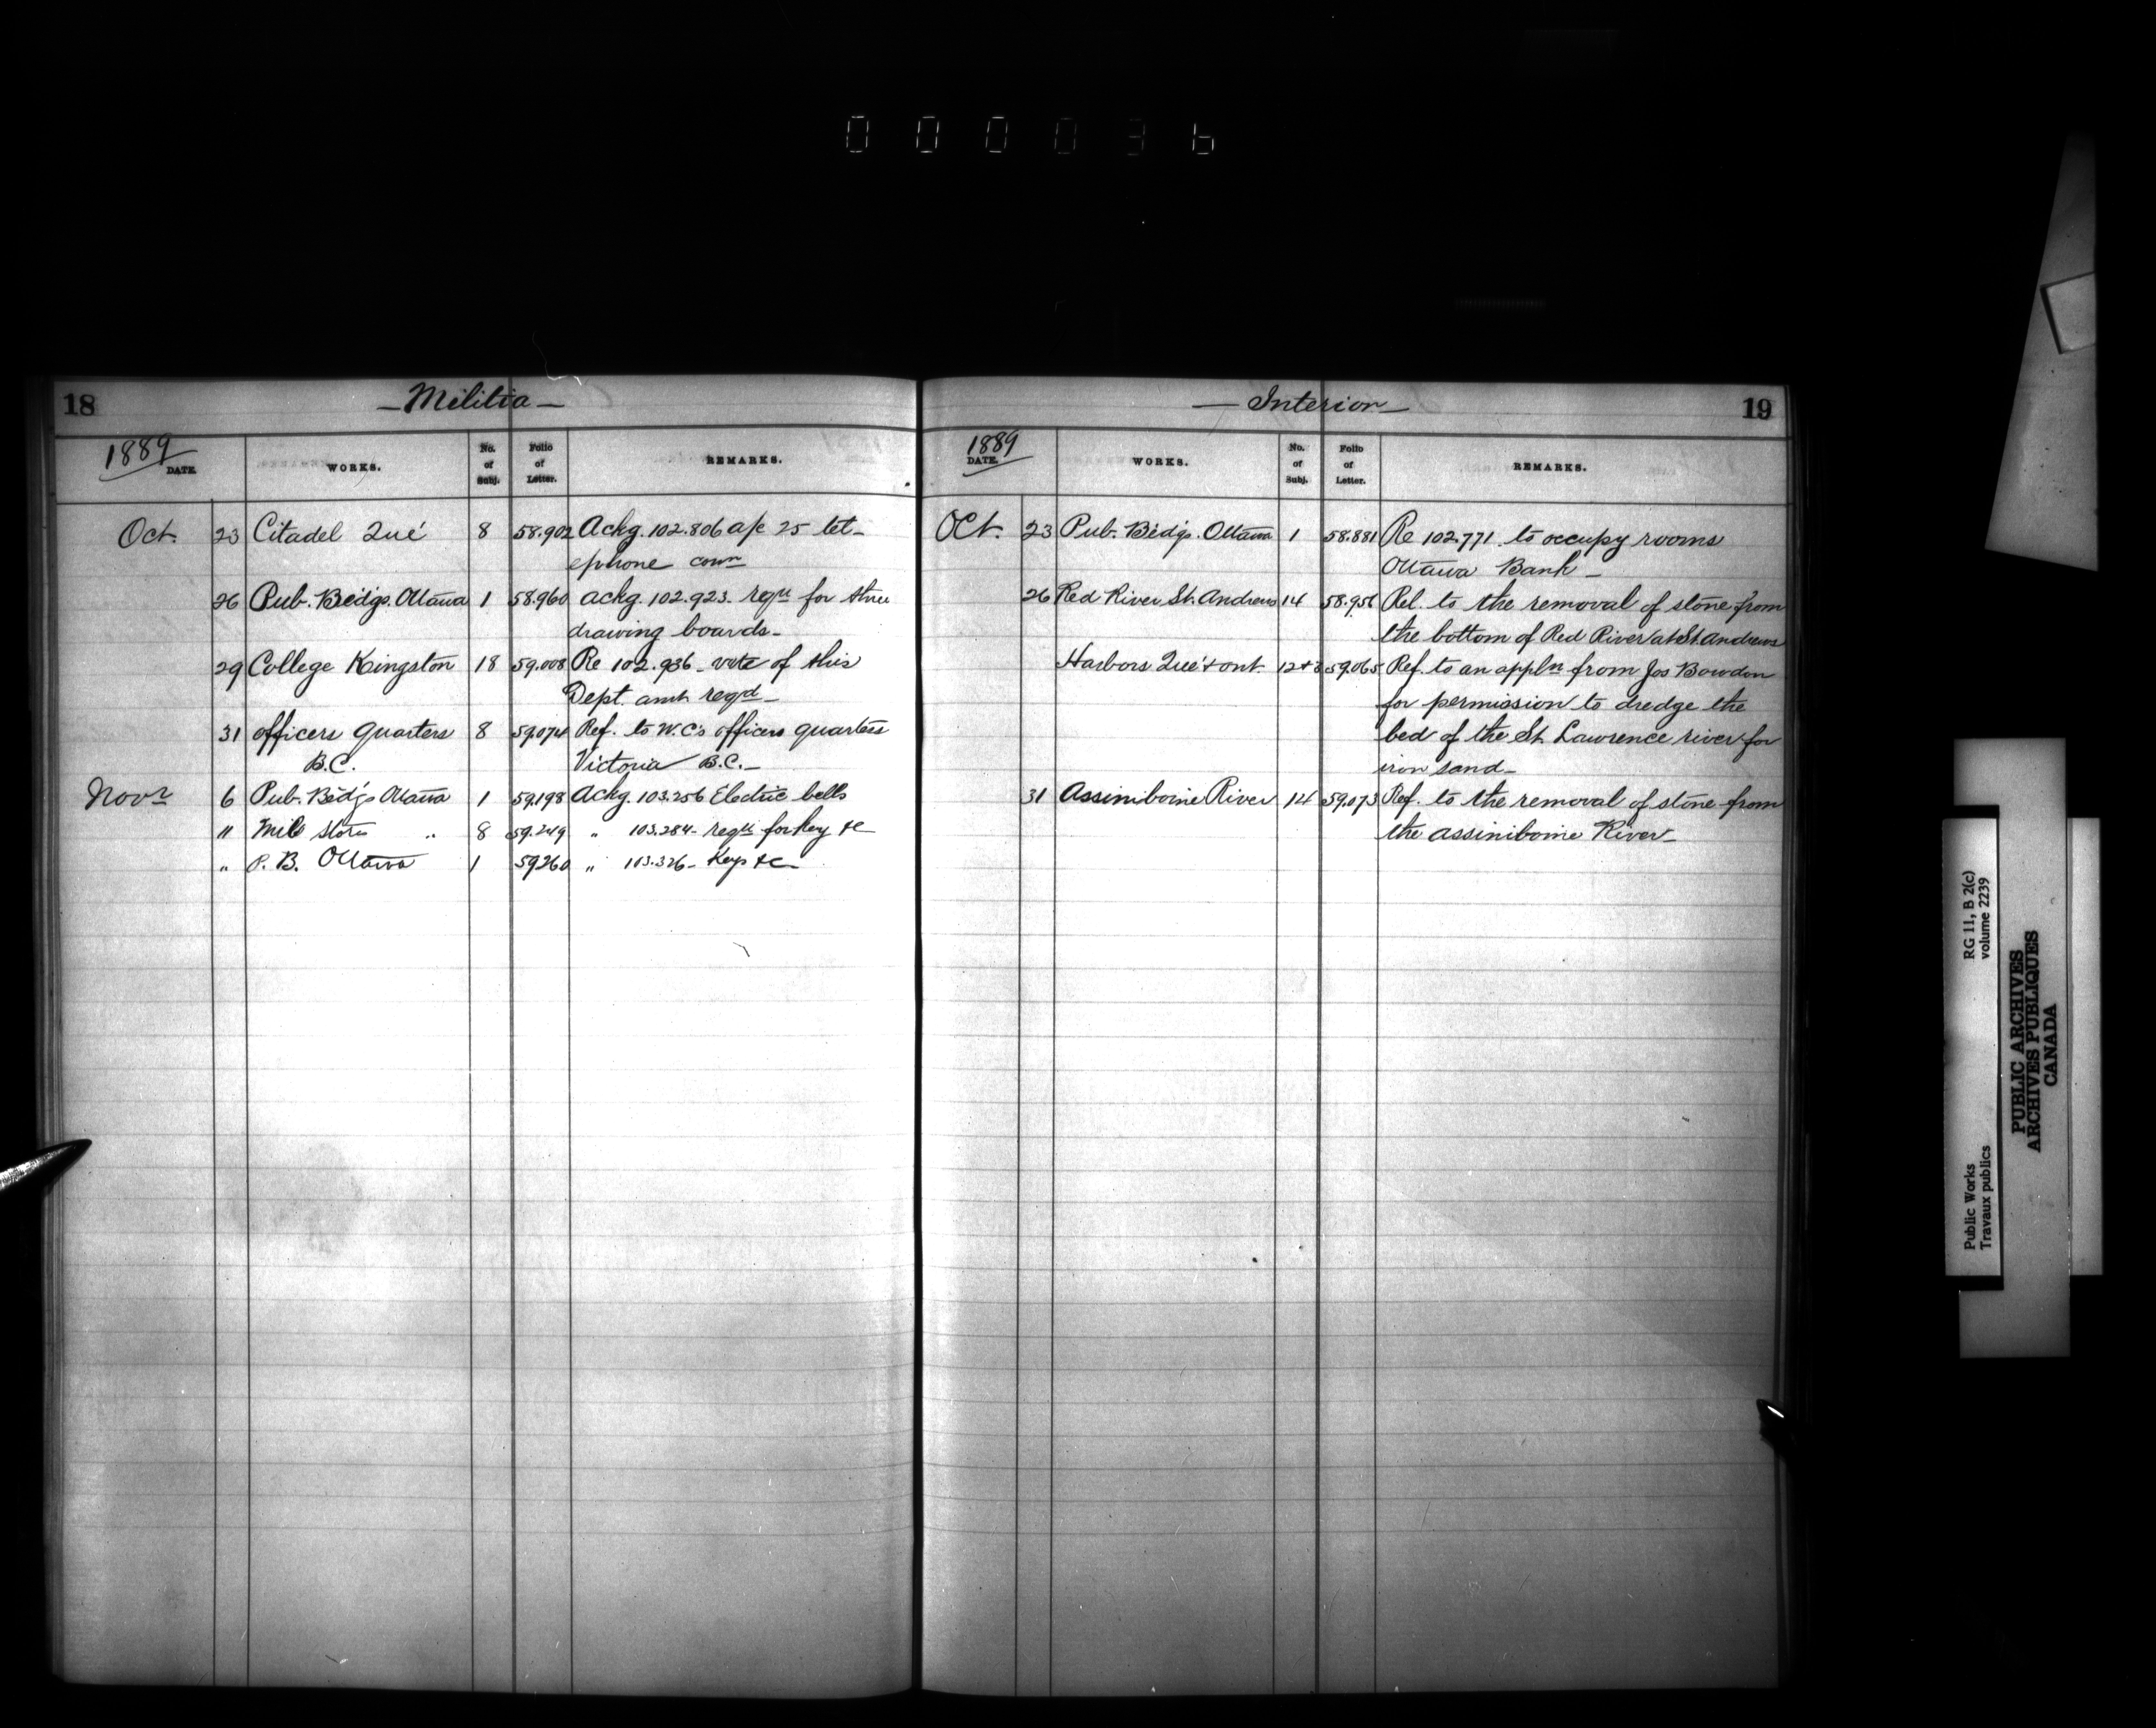 000036
18 — Militia —
1889 DATE. WORKS. No. of Subj. Folio of Letter. REMARKS.
Oct. 23 Citadel Qué 8 58.902 Ackg. 102.806 a/c 25 tel-
ephone conn
26 Pub. Bldgs. Ottawa 1 58.960 ackg. 102.923. reqn for three
drawing boards.
29 College Kingston 18 59.008 Re 102.936 - vote of this
Dept. amt reqd -
31 officers quarters 8 59.074 Ref. to W.C's officers quarters
B.C. Victoria B.C. -
Novr 6 Pub. Bldg's Ottawa 1 59.198 Ackg. 103.256 Electric bells
11 Mil stores " 8 59.249 " 103.284 - reqn for key &c
" P. B. Ottawa 1 59260 " 103.326 - Keys &c -
— Interior — 19
1889 DATE. WORKS. No. of Subj. Folio of Letter. REMARKS.
Oct. 23 Pub. Bldgs. Ottawa 1 58.881 Re 102.771. to occupy rooms
Ottawa Bank -
26 Red River St. Andrews 14 58.956 Rel. to the removal of stone from
the bottom of Red River at St. Andrews
Harbors Que' & ont. 12+3 59.065 Ref. to an appln from Jos Bowdon
for permission to dredge the
bed of the St Lawrence river for
iron sand -
31 Assiniboine River 14 59.073 Ref. to the removal of stone from
the assiniboine River -
Public Works RG 11, B 2(c)
Travaux publics volume 2239
PUBLIC ARCHIVES
ARCHIVES PUBLIQUES
CANADA